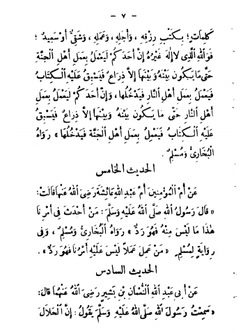 - ٧ -
كَلِمَاتٍ: بِكَتْبِ رِزْقِهِ، وَأَجَلِهِ، وَعَمَلِهِ، وَشَقِيٌّ أَوْ سَعِيدٌ؛
فَوَاللَّهِ الَّذِي لَا إِلَهَ غَيْرُهُ إِنَّ أَحَدَكُمْ لَيَعْمَلُ بِعَمَلِ أَهْلِ الْجَنَّةِ
حَتَّى مَا يَكُونُ بَيْنَهُ وَبَيْنَهَا إِلَّا ذِرَاعٌ فَيَسْبِقُ عَلَيْهِ
الْكِتَابُ فَيَعْمَلُ بِعَمَلِ أَهْلِ النَّارِ فَيَدْخُلُهَا، وَإِنَّ أَحَدَكُمْ لَيَعْمَلُ بِعَمَلِ
أَهْلِ النَّارِ حَتَّى مَا يَكُونُ بَيْنَهُ وَبَيْنَهَا إِلَّا ذِرَاعٌ فَيَسْبِقُ
عَلَيْهِ الْكِتَابُ فَيَعْمَلُ بِعَمَلِ أَهْلِ الْجَنَّةِ فَيَدْخُلُهَا» رَوَاهُ
الْبُخَارِيُّ وَمُسْلِمٌ.
الحديث الخامس
عَنْ أُمِّ الْمُؤْمِنِينَ أُمِّ عَبْدِ اللَّهِ عَائِشَةَ رَضِيَ اللَّهُ عَنْهَا قَالَتْ:
«قَالَ رَسُولُ اللَّهِ صَلَّى اللَّهُ عَلَيْهِ وَسَلَّمَ: مَنْ أَحْدَثَ فِي أَمْرِنَا
هَذَا مَا لَيْسَ مِنْهُ فَهُوَ رَدٌّ» رَوَاهُ الْبُخَارِيُّ وَمُسْلِمٌ، وَفِي
رِوَايَةٍ لِمُسْلِمٍ «مَنْ عَمِلَ عَمَلًا لَيْسَ عَلَيْهِ أَمْرُنَا فَهُوَ رَدٌّ».
الحديث السادس
عَنْ أَبِي عَبْدِ اللَّهِ النُّعْمَانِ بْنِ بَشِيرٍ رَضِيَ اللَّهُ عَنْهُمَا قَالَ:
«سَمِعْتُ رَسُولَ اللَّهِ صَلَّى اللَّهُ عَلَيْهِ وَسَلَّمَ يَقُولُ: إِنَّ الْحَلَالَ